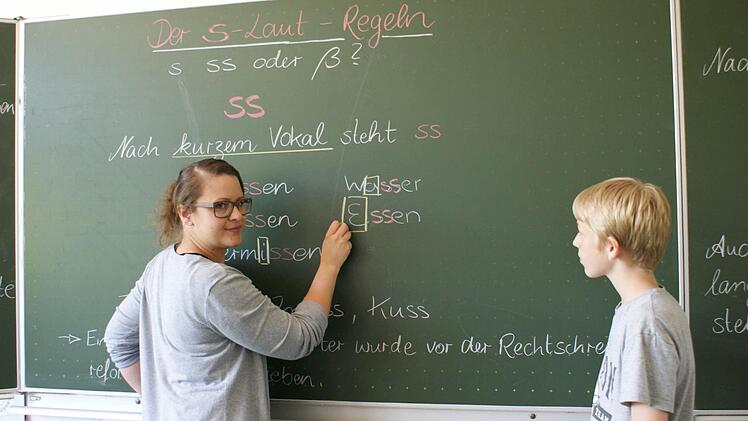 Der s-Laut-Regeln
s ss oder ß?
ss
Nach kurzem Vokal steht ss
ssen wasser
ssen Essen
rmissen
ss, Kuss
→ Ein ter wurde vor der Rechtschre
refor eben.
Nach
Auc
lan
ste